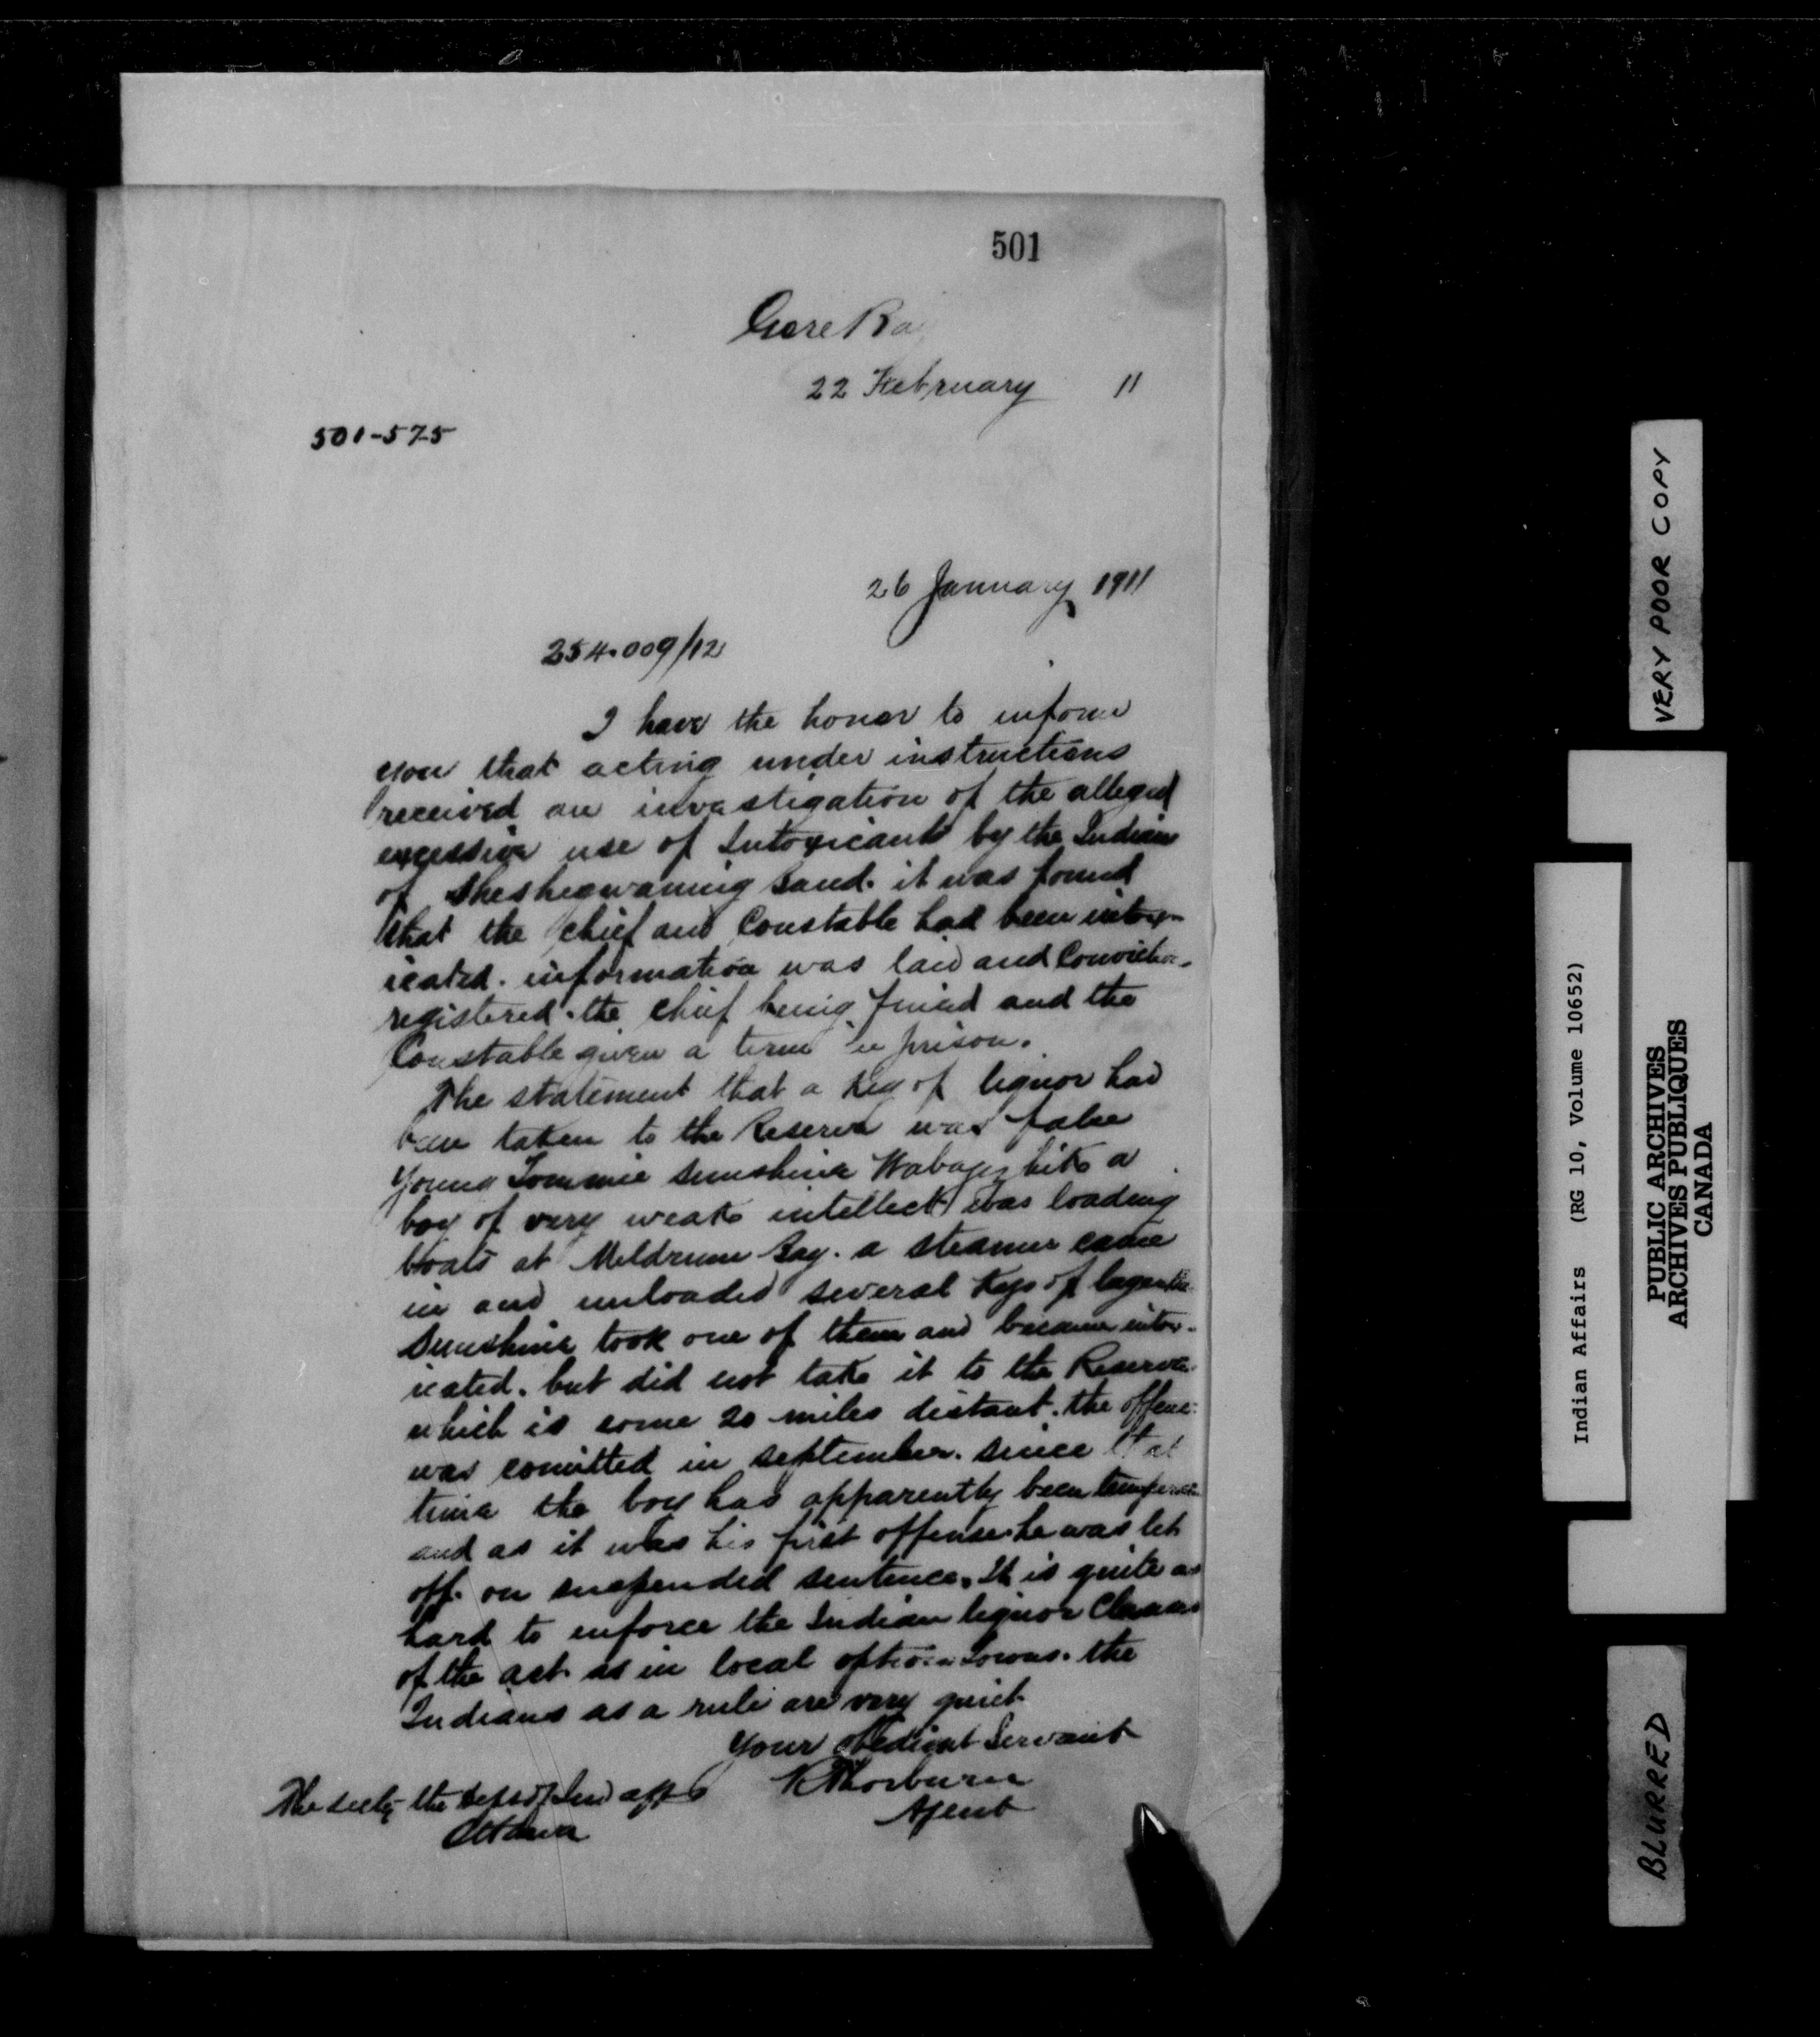 501
Gore Ba
22 February 11
501-575
26 January 1911
254.009/12
I have the honor to inform
you that acting under instructions
received an investigation of the alleged
excessive use of Intoxicants by the Indians
of Sheshegwaning Band. it was found
that the chief and Constable had been intox-
icated. information was laid and Conviction
registered. the chief being fined and the
Constable given a term in prison.
The statement that a keg of liquor had
been taken to the Reserve was false
Young Tommie Sunshine a
boy of very weak intellect was loading
boats at Meldrum Bay. a steamer came
in and unloaded several kegs of
Sunshine took one of them and became intox-
icated. but did not take it to the Reserve
which is some 20 miles distant. the offense
was comitted in september. since that
time the boy has apparently been temperate
and as it was his first offense he was let
off on suspended sentence. It is quite as
hard to enforce the Indian liquor Clauses
of the act as in local option Towns. the
Indians as a rule are very quiet
Your obedient Servant
R Thorburn
Agent
The secty the dept of Ind affs
Ottawa
VERY POOR COPY
Indian Affairs (RG 10, Volume 10652)
PUBLIC ARCHIVES
ARCHIVES PUBLIQUES
CANADA
BLURRED